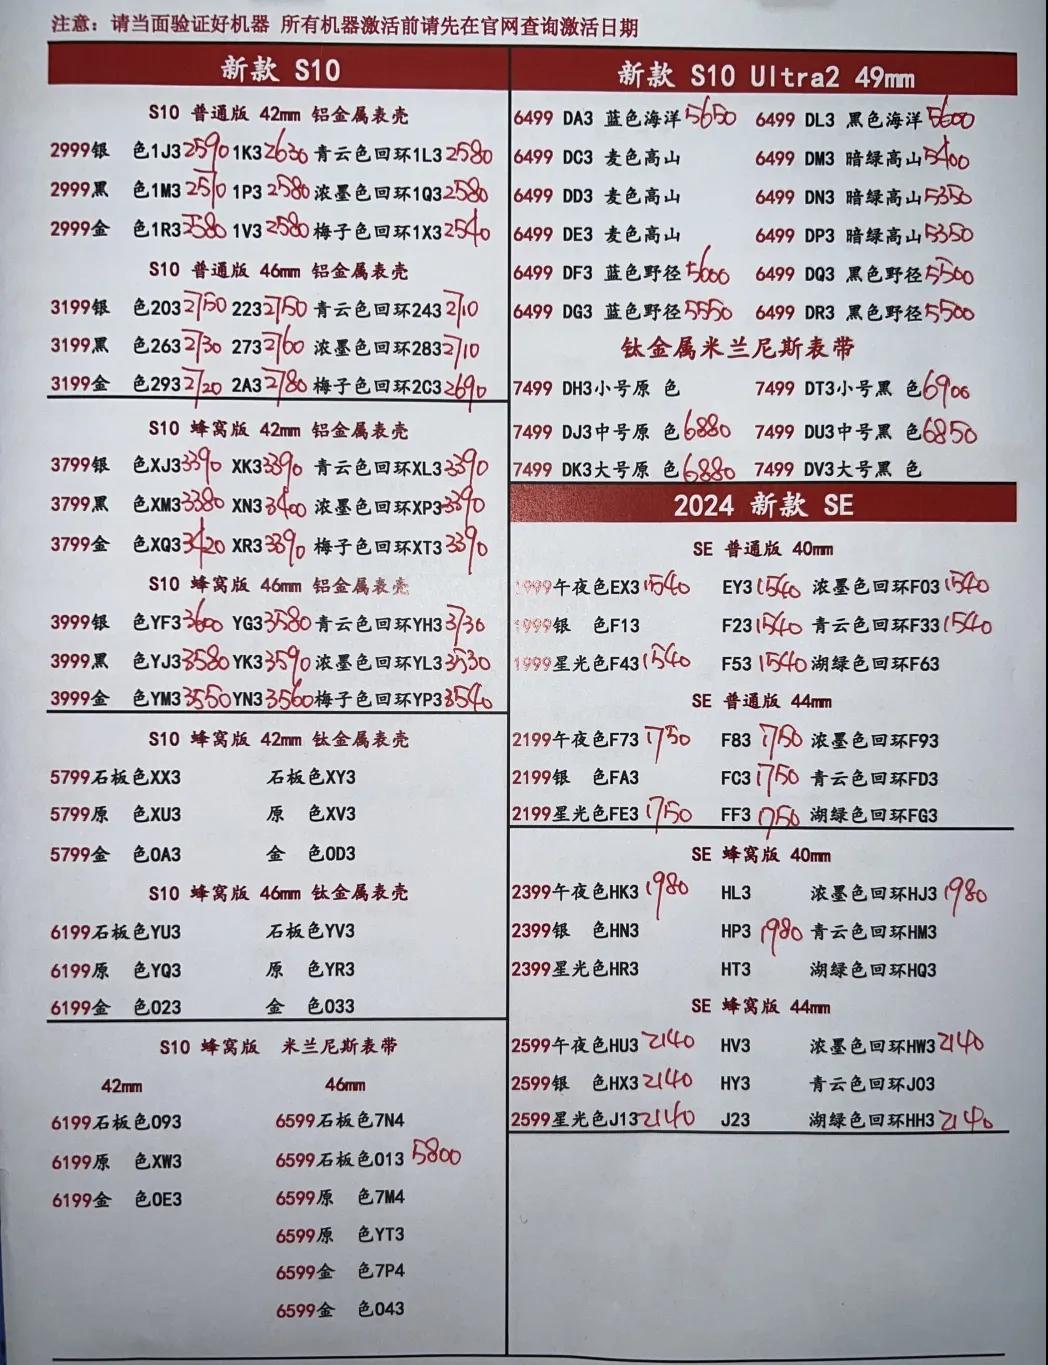 注意：请当面验证好机器 所有机器激活前请先在官网查询激活日期
新款 S10
S10 普通版 42mm 铝金属表壳
2999银 色1J3 2590 1K3 2630 青云色回环1L3 2580
2999黑 色1M3 2510 1P3 2580 浓墨色回环1Q3 2580
2999金 色1R3 2580 1V3 2580 梅子色回环1X3 2540
S10 普通版 46mm 铝金属表壳
3199银 色203 2750 223 2750 青云色回环243 2710
3199黑 色263 2730 273 2760 浓墨色回环283 2710
3199金 色293 2720 2A3 2780 梅子色回环2C3 2690
S10 蜂窝版 42mm 铝金属表壳
3799银 色XJ3 3390 XK3 3390 青云色回环XL3 3390
3799黑 色XM3 3380 XN3 3400 浓墨色回环XP3 3390
3799金 色XQ3 3420 XR3 3390 梅子色回环XT3 3390
S10 蜂窝版 46mm 铝金属表壳
3999银 色YF3 3600 YG3 3580 青云色回环YH3 3730
3999黑 色YJ3 3580 YK3 3590 浓墨色回环YL3 3530
3999金 色YM3 3550 YN3 3560 梅子色回环YP3 3540
S10 蜂窝版 42mm 钛金属表壳
5799石板色XX3 石板色XY3
5799原 色XU3 原 色XV3
5799金 色0A3 金 色0D3
S10 蜂窝版 46mm 钛金属表壳
6199石板色YU3 石板色YV3
6199原 色YQ3 原 色YR3
6199金 色023 金 色033
S10 蜂窝版 米兰尼斯表带
42mm 46mm
6199石板色093 6599石板色7N4
6199原 色XW3 6599石板色013 5800
6199金 色0E3 6599原 色7M4
6599原 色YT3
6599金 色7P4
6599金 色043
新款 S10 Ultra2 49mm
6499 DA3 蓝色海洋 5650 6499 DL3 黑色海洋 5600
6499 DC3 麦色高山 6499 DM3 暗绿高山 5400
6499 DD3 麦色高山 6499 DN3 暗绿高山 5350
6499 DE3 麦色高山 6499 DP3 暗绿高山 5350
6499 DF3 蓝色野径 5600 6499 DQ3 黑色野径 5500
6499 DG3 蓝色野径 5550 6499 DR3 黑色野径 5500
钛金属米兰尼斯表带
7499 DH3小号原 色 7499 DT3小号黑 色 6900
7499 DJ3中号原 色 6880 7499 DU3中号黑 色 6850
7499 DK3大号原 色 6880 7499 DV3大号黑 色
2024 新款 SE
SE 普通版 40mm
1999午夜色EX3 1540 EY3 1540 浓墨色回环F03 1540
1999银 色F13 F23 1540 青云色回环F33 1540
1999星光色F43 1540 F53 1540 湖绿色回环F63
SE 普通版 44mm
2199午夜色F73 1750 F83 1750 浓墨色回环F93
2199银 色FA3 FC3 1750 青云色回环FD3
2199星光色FE3 1750 FF3 1750 湖绿色回环FG3
SE 蜂窝版 40mm
2399午夜色HK3 1980 HL3 浓墨色回环HJ3 1980
2399银 色HN3 HP3 1980 青云色回环HM3
2399星光色HR3 HT3 湖绿色回环HQ3
SE 蜂窝版 44mm
2599午夜色HU3 2140 HV3 浓墨色回环HW3 2140
2599银 色HX3 2140 HY3 青云色回环J03
2599星光色J13 2140 J23 湖绿色回环HH3 2140